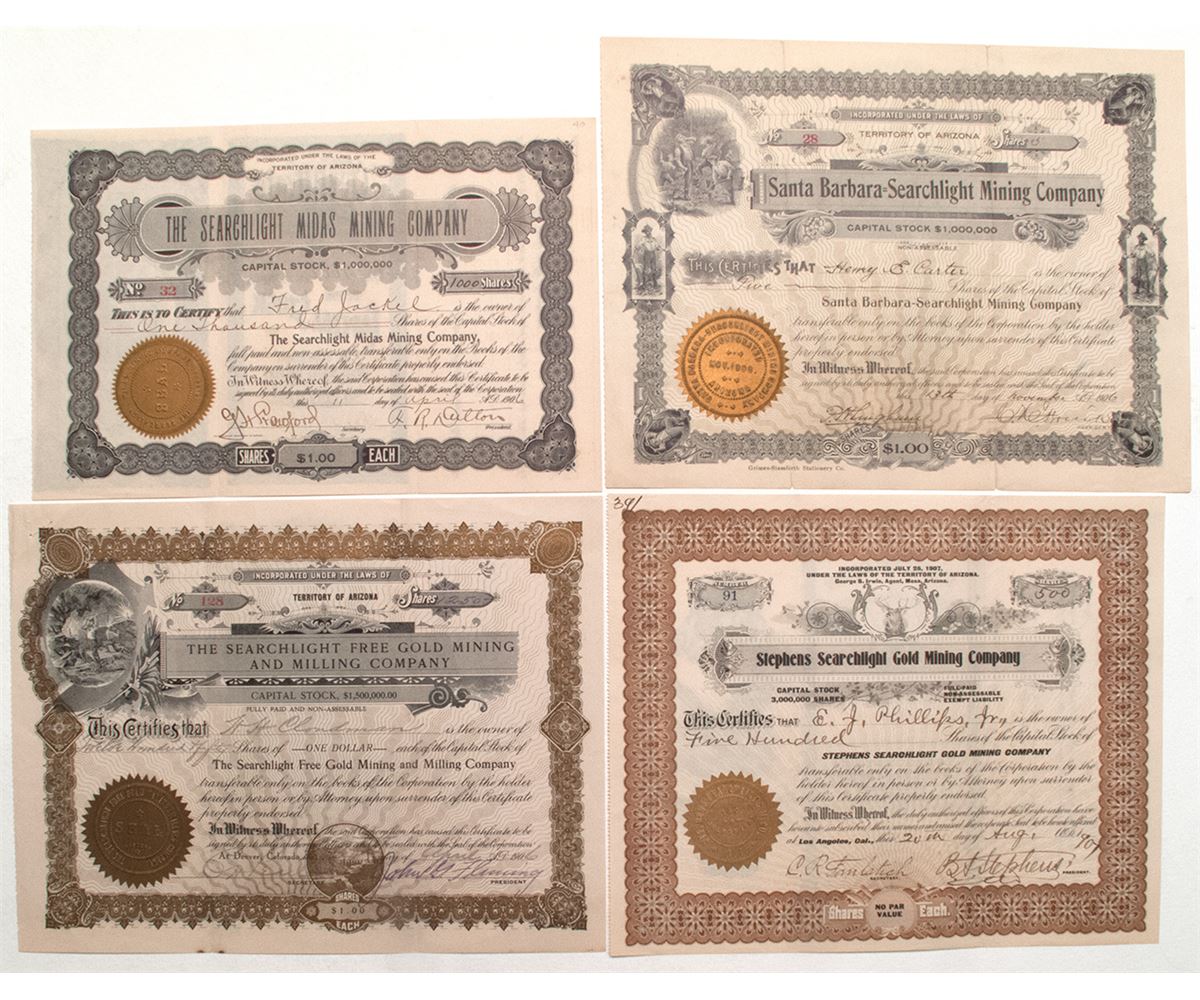 INCORPORATED UNDER THE LAWS OF THE
TERRITORY OF ARIZONA
THE SEARCHLIGHT MIDAS MINING COMPANY
CAPITAL STOCK, $1,000,000
No 32
1000 Shares
THIS IS TO CERTIFY that Fred Jackel is the owner of
One Thousand Shares of the Capital Stock of
The Searchlight Midas Mining Company,
full paid and non-assessable, transferable only on the Books of the
Company on surrender of this Certificate properly endorsed.
In Witness Whereof, the said Corporation has caused this Certificate to be
signed by its duly authorized officers and to be sealed with the seal of the Corporation
this 11 day of April A.D. 1906
SEAL
Secretary
President
SHARES $1.00 EACH
INCORPORATED UNDER THE LAWS OF
TERRITORY OF ARIZONA
No 28
Shares 5
Santa Barbara-Searchlight Mining Company
CAPITAL STOCK $1,000,000
NON-ASSESSABLE
THIS CERTIFIES THAT Henry E. Carter is the owner of
Five Shares of the Capital Stock of
Santa Barbara-Searchlight Mining Company
transferable only on the books of the Corporation by the holder
hereof in person or by Attorney upon surrender of this Certificate
properly endorsed.
In Witness Whereof, the said Corporation has caused this Certificate to be
signed by its duly authorized officers and to be sealed with the Seal of the Corporation
this 13th day of November A.D. 1906
INCORPORATED
NOV. 1906
ARIZONA
SHARES
$1.00
Grimes-Stassforth Stationery Co.
INCORPORATED UNDER THE LAWS OF
TERRITORY OF ARIZONA
No 128
Shares 1250
THE SEARCHLIGHT FREE GOLD MINING
AND MILLING COMPANY
CAPITAL STOCK, $1,500,000.00
FULLY PAID AND NON-ASSESSABLE
This Certifies that is the owner of
Shares of —ONE DOLLAR— each of the Capital Stock of
The Searchlight Free Gold Mining and Milling Company
transferable only on the books of the Corporation by the holder
hereof in person or by Attorney upon surrender of this Certificate
properly endorsed.
In Witness Whereof, the said Corporation has caused this Certificate to be
signed by its duly authorized officers and to be sealed with the Seal of the Corporation
At Denver, Colorado, day of A.D. 1906
John G. Fleming
SECRETARY
PRESIDENT
SHARES
$1.00
EACH
391
INCORPORATED JULY 25, 1907,
UNDER THE LAWS OF THE TERRITORY OF ARIZONA.
George S. Irwin, Agent, Mesa, Arizona.
NUMBER
91
SHARES
500
Stephens Searchlight Gold Mining Company
CAPITAL STOCK
3,000,000 SHARES
FULL-PAID
NON-ASSESSABLE
EXEMPT LIABILITY
This Certifies THAT E. J. Phillips, Jr, is the owner of
Five Hundred Shares of the Capital Stock of
STEPHENS SEARCHLIGHT GOLD MINING COMPANY
transferable only on the books of the Corporation by the
holder hereof in person or by Attorney upon surrender
of this Certificate properly endorsed.
In Witness Whereof, the duly authorized officers of this Corporation have
hereunto subscribed their names and caused the corporate Seal to be hereto affixed
at Los Angeles, Cal., this 20th day of Aug. 1907
B. F. Stephens
SECRETARY
PRESIDENT.
Shares NO PAR VALUE Each.